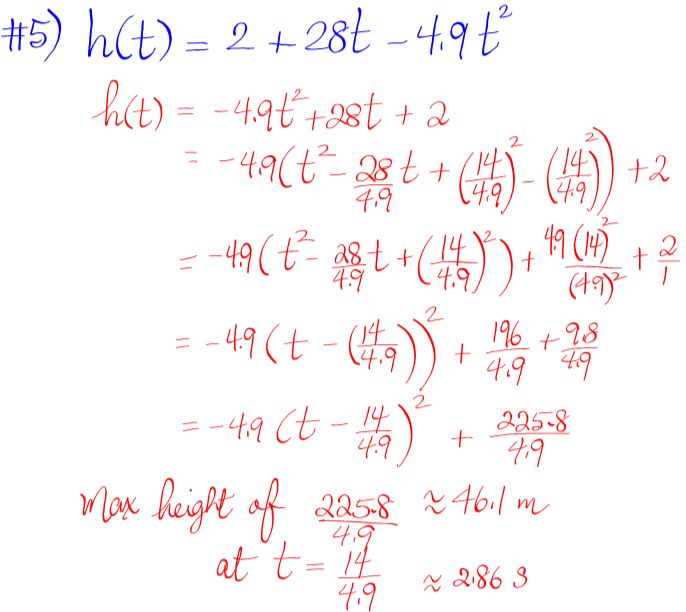 #5) h(t) = 2 + 28t - 4.9t²
h(t) = -4.9t² + 28t + 2
= -4.9(t² - 28/4.9 t + (14/4.9)² - (14/4.9)²) + 2
= -4.9(t² - 28/4.9 t + (14/4.9)²) + 4.9(14)²/(4.9)² + 2/1
= -4.9(t - (14/4.9))² + 196/4.9 + 9.8/4.9
= -4.9(t - 14/4.9)² + 225.8/4.9
Max height of 225.8/4.9 ≈ 46.1 m
at t = 14/4.9 ≈ 2.86 s